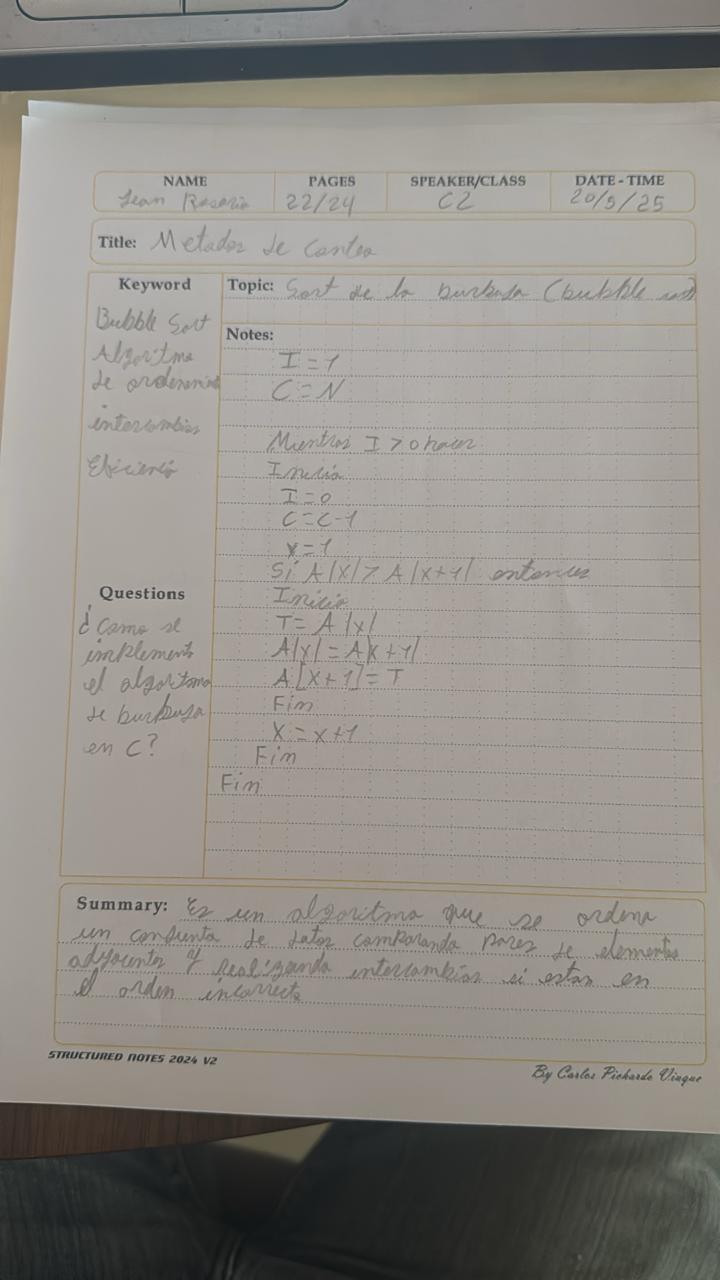 NAME PAGES SPEAKER/CLASS DATE-TIME
Jean Rosario 22/24 C2 20/5/25
Title: Metados de Conteo
Keyword
Bubble Sort
Algoritmo
de ordenamient
intercambios
Eficiencia
Questions
¿Como se
implement
el algoritmo
de burbuja
en C?
Topic: Sort de la burbuja (bubble sort)
Notes:
I = 1
C = N
Mientras I > 0 hacer
Inicio
I = 0
C = C - 1
X = 1
Si A|X| > A|X+1| entonces
Inicio
T = A|X|
A|X| = A|X+1|
A[X+1] = T
Fin
X = X+1
Fin
Fin
Summary: Es un algoritmo que se ordena
un conjunto de datos comparando pares de elementos
adjacentes y realizando intercambios si estan en
el orden incorrecto
STRUCTURED NOTES 2024 V2
By Carlos Pichardo Viuque